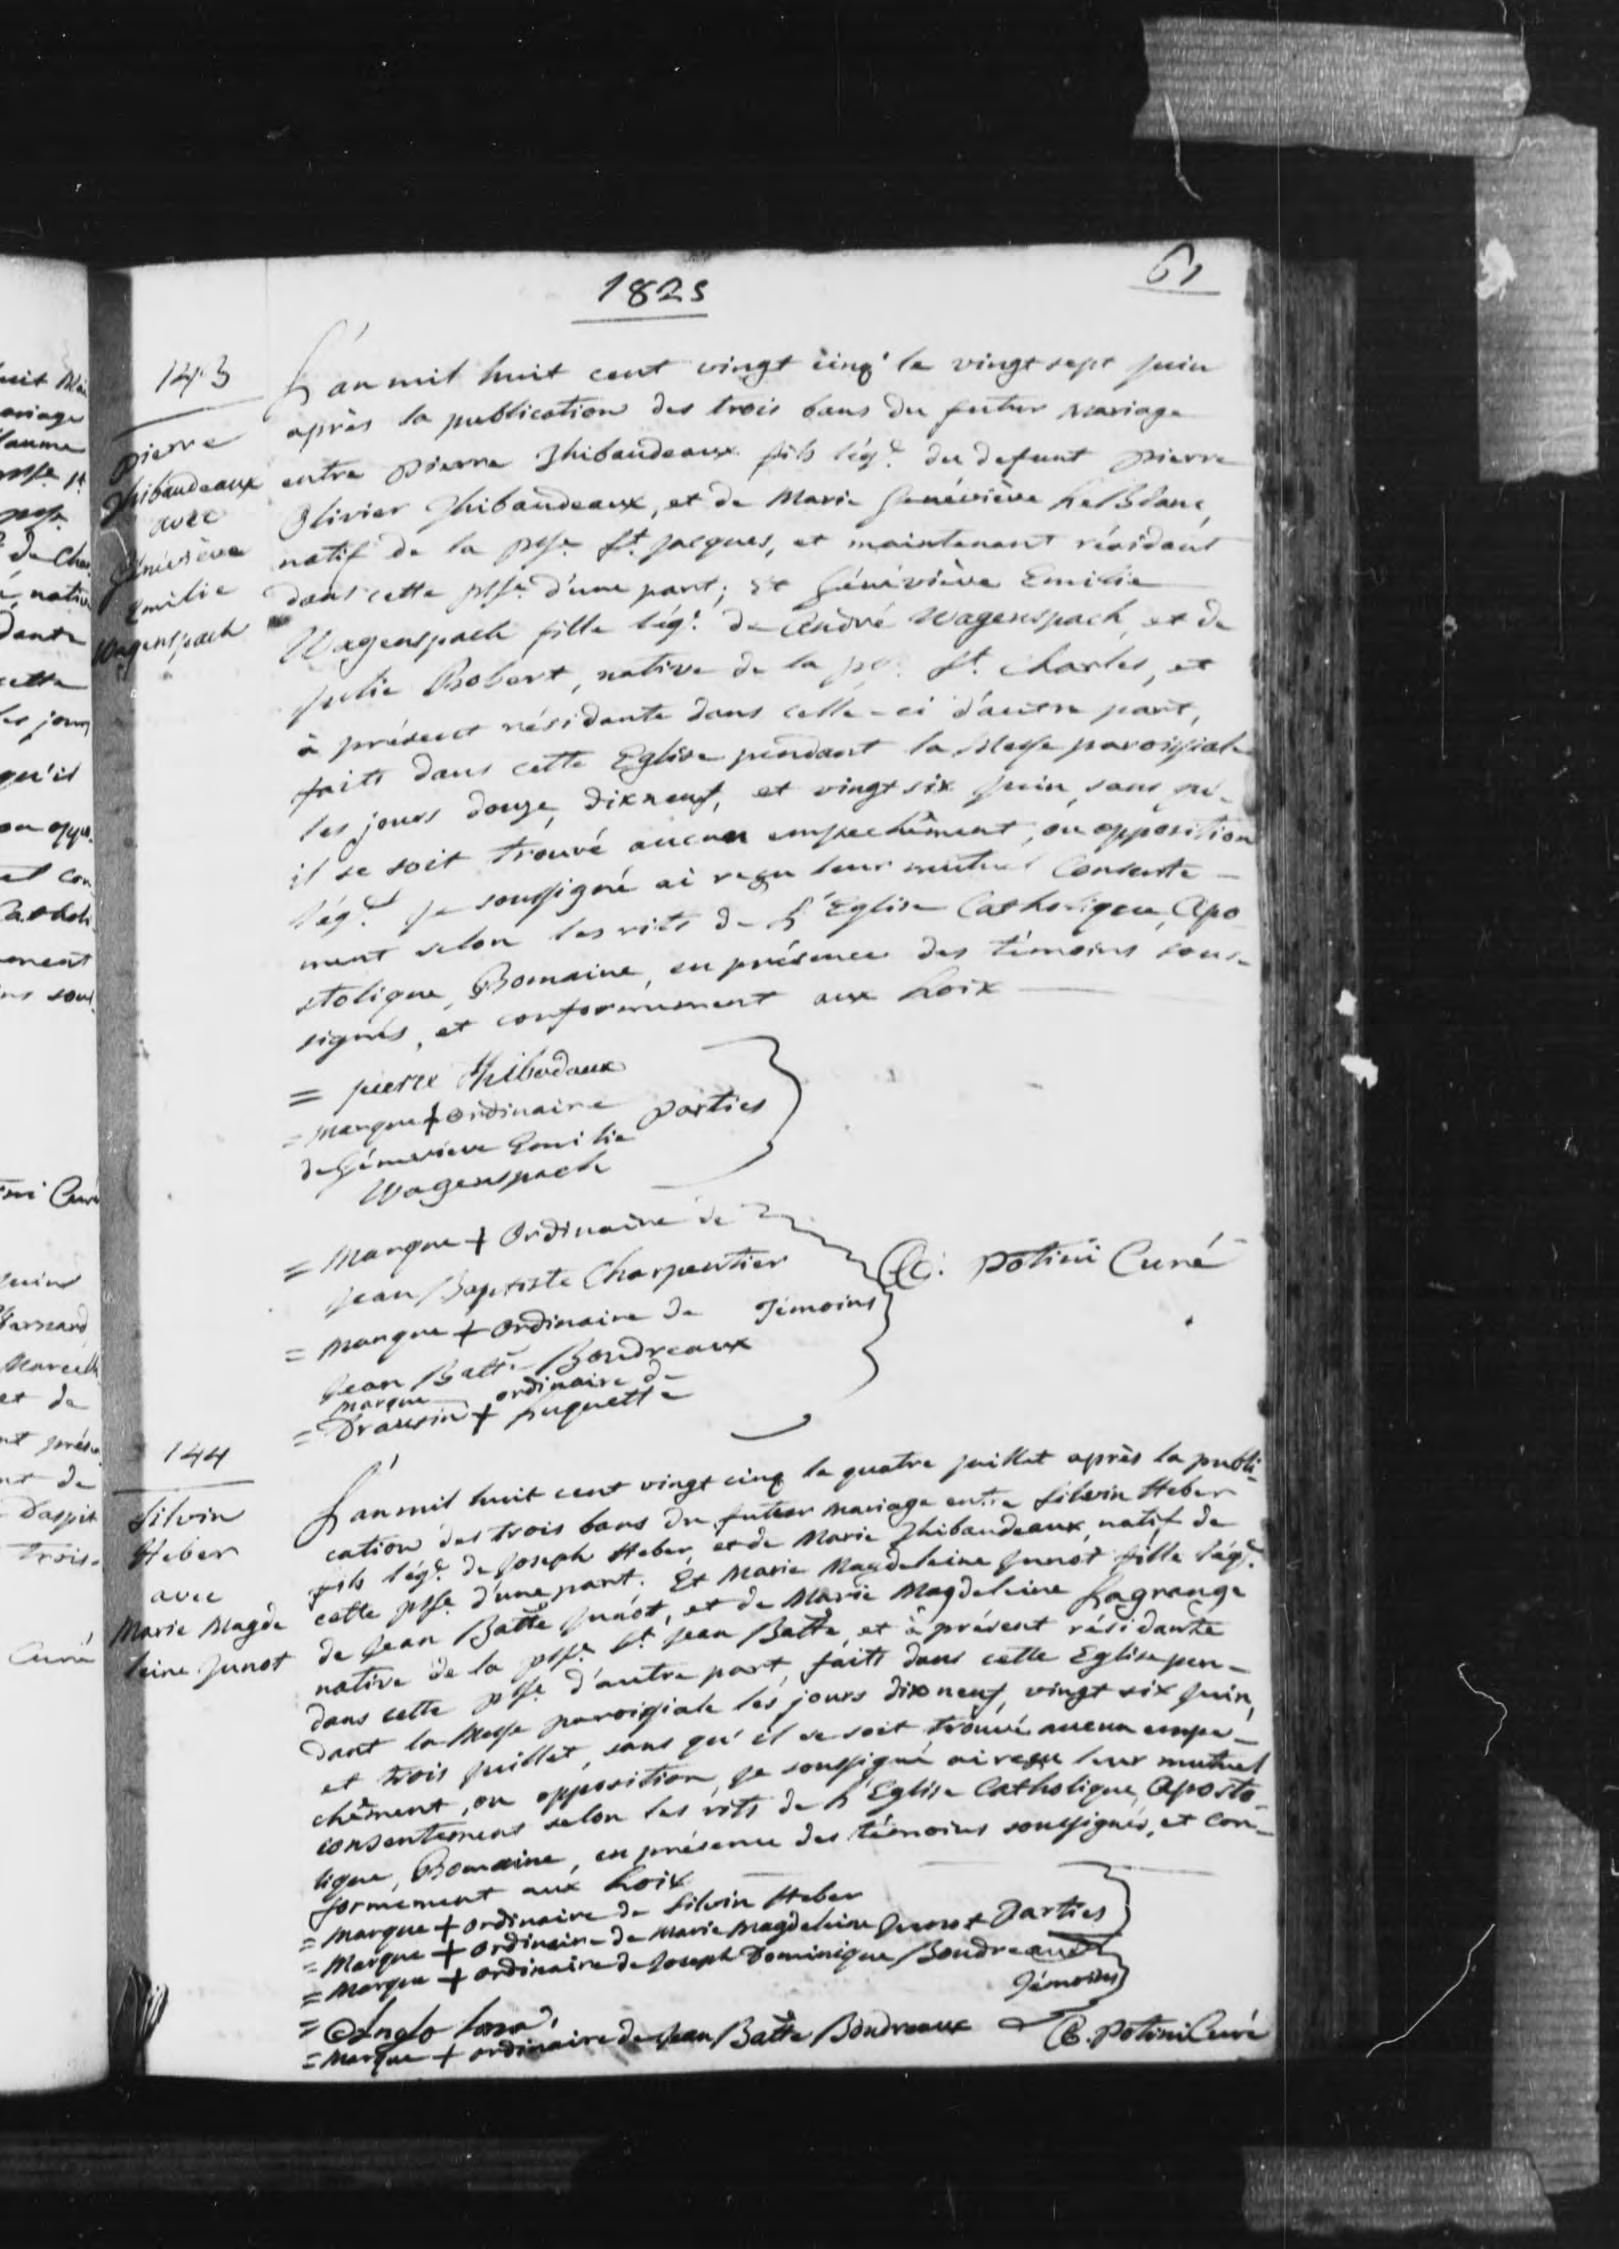 1825
61
143
Pierre
Thibaudeaux
avec
Généviève
Emilie
Wagenspach
L'an mil huit cent vingt cinq le vingt sept juin
après la publication des trois bans du futur Mariage
entre Pierre Thibaudeaux fils lég.e du defunt Pierre
Olivier Thibaudeaux, et de Marie Généviève LeBlanc,
natif de la psse St. Jacques, et maintenant résidant
dans cette psse d'une part; Et Généviève Emilie
Wagenspach fille lég.e de André Wagenspach, et de
Julie Robert, native de la St. Charles, et
à présent résidante dans celle-ci d'autre part,
faits dans cette Eglise pendant la Messe paroissiale
les jours douze, dixneuf, et vingt six Juin, sans qu'-
il se soit trouvé aucun empechêment, ou opposition
lég.e Je soussigné ai reçu leur mutuel Consente-
ment selon les rits de L'Eglise Catholique, Apo-
stolique, Romaine, en présence des témoins sous-
signés, et conformement aux Loix
= pierre thibodaux
= Marque + ordinaire
de Généviève Emilie
Wagenspach
Parties
= Marque + Ordinaire de
Jean Baptiste Charpentier
= Marque + ordinaire de
Jean Batte Boudreaux
marque ordinaire de
= Drausin + Luquette
Témoins
C: Potini Curé
144
Silvin
Heber
avec
Marie Magde
leine Junot
L'an mil huit cent vingt cinq le quatre juillet après la publi-
cation des trois bans du futur mariage entre Silvin Heber
fils lég.e de Joseph Heber, et de Marie Thibaudeaux, natif de
cette psse d'une part. Et Marie Magdeleine Junot fille lég.e
de Jean Batte Junot, et de Marie Magdeleine Lagrange
native de la psse St. Jean Batte, et à présent résidante
dans cette psse d'autre part, faits dans cette Eglise pen-
dant la Messe paroissiale les jours dixneuf, vingt six Juin,
et trois Juillet, sans qu'il se soit trouvé aucun empe-
chêment, ou opposition, Je soussigné ai reçu leur mutuel
consentement selon les rits de L'Eglise Catholique, Aposto-
lique, Romaine, en présence des témoins soussignés, et con-
formement aux Loix
= Marque + ordinaire de Silvin Heber
= Marque + ordinaire de Marie Magdeleine Junot Parties
= Marque + ordinaire de Joseph Dominique Boudreaux
Témoins
= Marque + ordinaire de Jean Batte Boudreaux
C. Potini Curé